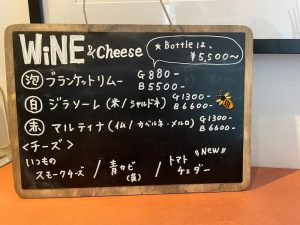 WiNE & Cheese
★Bottleは、
¥5,500〜
泡 ブランケットリムー G 880-
B 5500-
白 ジラソーレ (米/シャルドネ) G 1300-
B 6600-
赤 マルティナ (仏/カベルネ・メルロ) G 1300-
B 6600-
<チーズ>
"New"
いつもの スモークチーズ / 青カビ / トマト チェダー